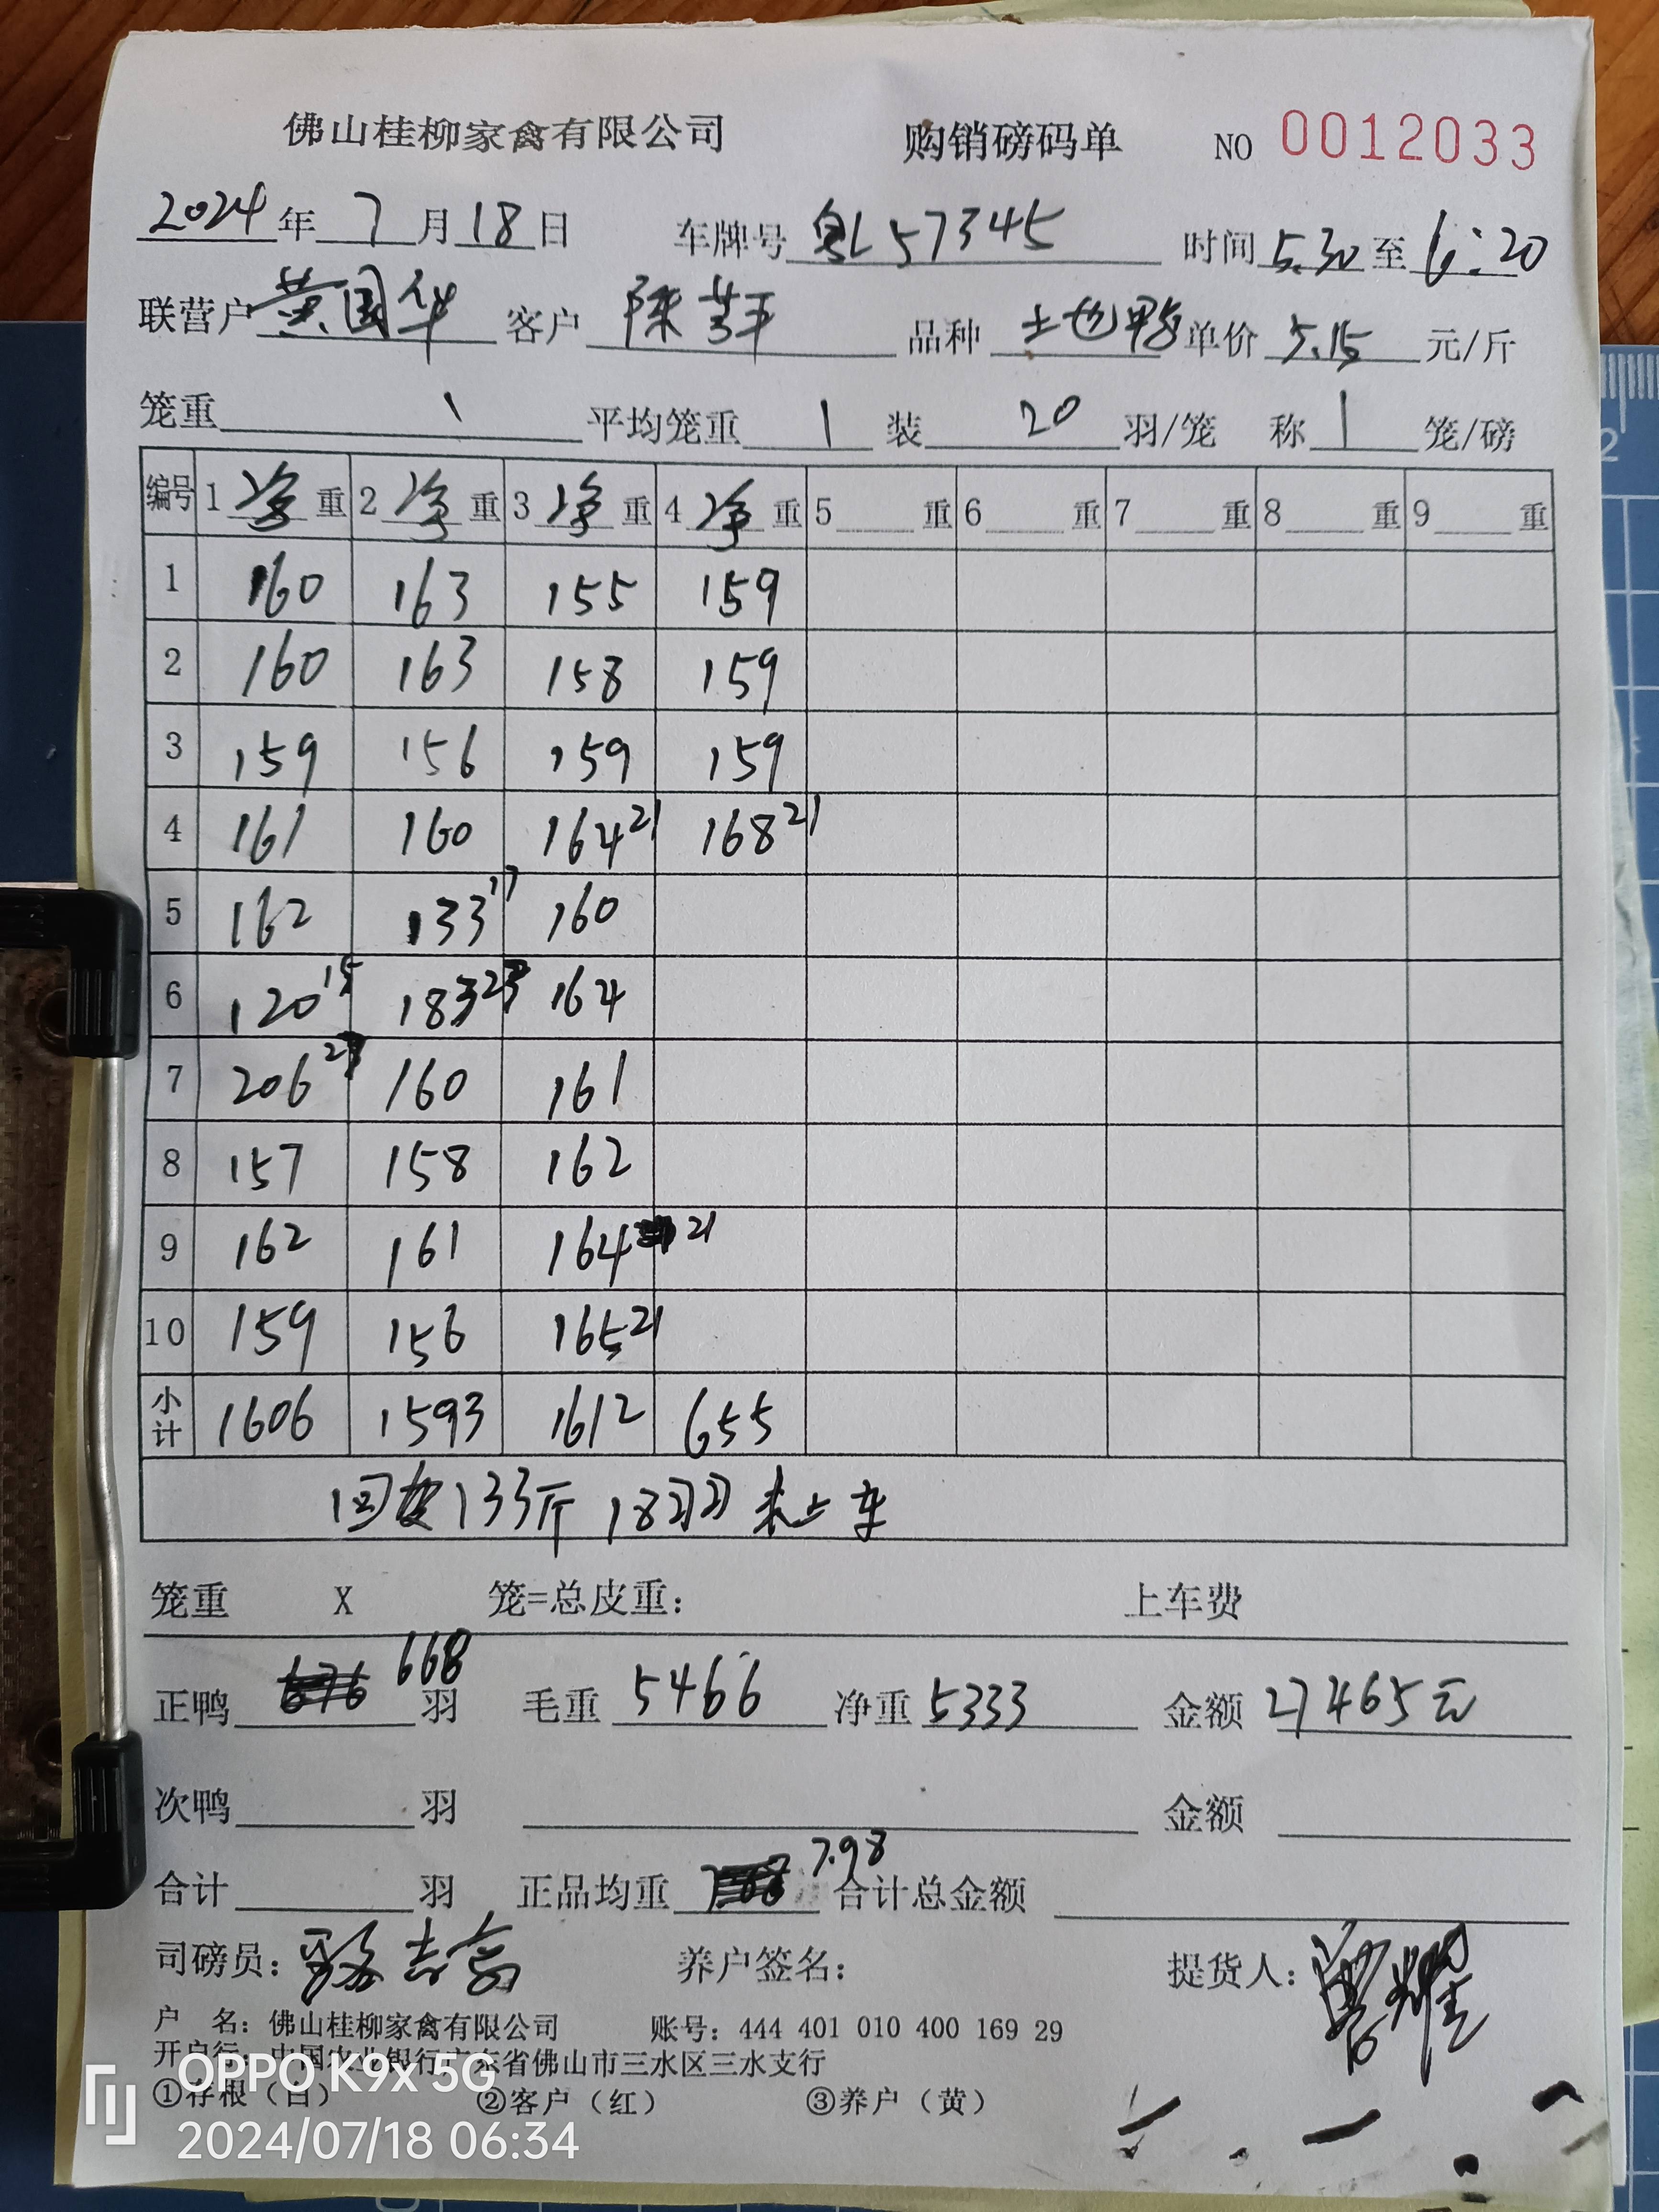 佛山桂柳家禽有限公司 购销磅码单 NO 0012033
2024年 7月18日 车牌号 粤L57345 时间 5.30 至 6:20
联营户 黄国华 客户 陈芳平 品种 土也鸭 单价 5.15 元/斤
笼重 \ 平均笼重 1 装 20 羽/笼 称 1 笼/磅
编号 1 净 重 2 净 重 3 净 重 4 净 重 5 重 6 重 7 重 8 重 9 重
1 160 163 155 159
2 160 163 158 159
3 159 156 159 159
4 161 160 164 21 168 21
5 162 133 17 160
6 120 15 183 23 164
7 206 160 161
8 157 158 162
9 162 161 164 21
10 159 156 165 21
小计 1606 1593 1612 655
回皮133斤 18羽 未上车
笼重 X 笼=总皮重: 上车费
正鸭 668 羽 毛重 5466 净重 5333 金额 27465元
次鸭 羽 金额
合计 羽 正品均重 7.98 合计总金额
司磅员: 养户签名: 提货人:
户 名: 佛山桂柳家禽有限公司 账号: 444 401 010 400 169 29
开户行: 中国农业银行广东省佛山市三水区三水支行
①存根（白） ②客户（红） ③养户（黄）
OPPO K9x 5G
2024/07/18 06:34